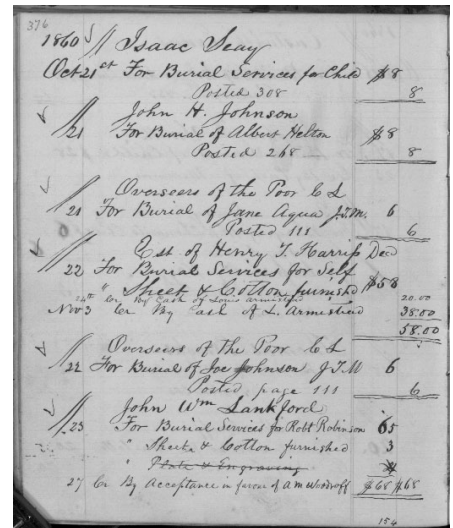 376
1860 Isaac Seay
Oct 21st For Burial Services for Child $8
Posted 308 8
John H. Johnson
21 For Burial of Albert Helton $8
Posted 268 8
Overseers of the Poor C L
21 For Burial of Jane Aqua J.T.M. 6
Posted 111 6
Est of Henry T. Harriss Decd
22 For Burial Services for Self
" Sheet & Cotton furnished $58
24th Cr By Cash of Louis Armistead 20.00
Nov 3 Cr By of L. Armistead 38.00
58.00
Overseers of the Poor C L
22 For Burial of Joe Johnson J T M 6
Posted page 111 6
John Wm Lankford
23 For Burial Services for Robt Robinson 65
" Sheet & Cotton furnished 3
" Plate & Engraving
27 Cr By Acceptance in favour of A M Woodroff $68 $68
154